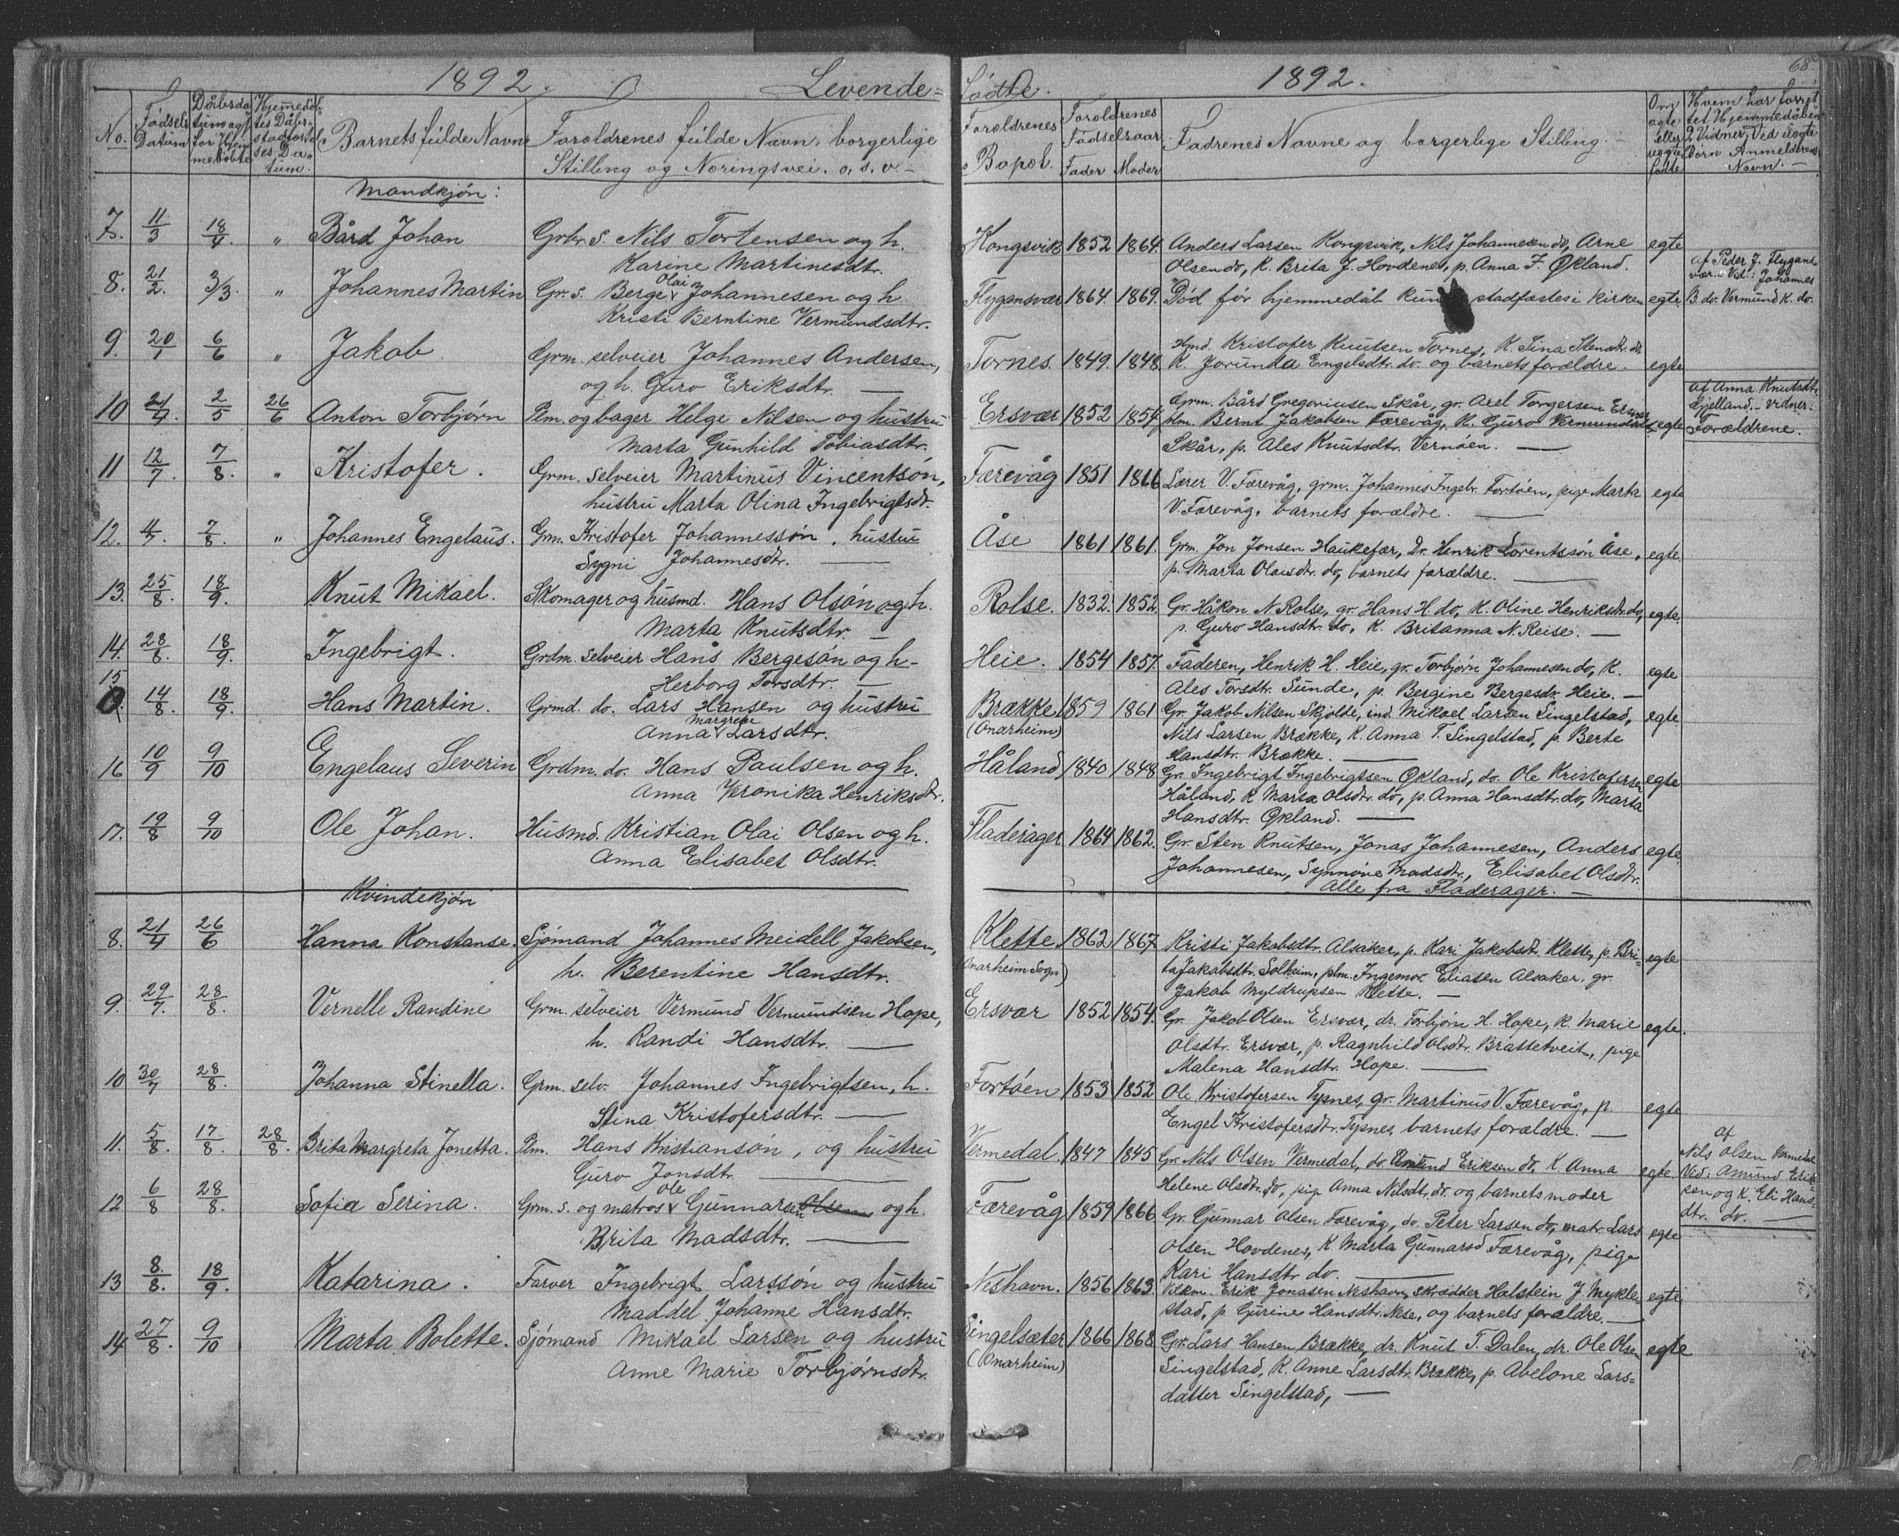 1892. Levende=
No.
Fødsels Datum
Dåbsdatum og f. for Hjemmedøbte
Hjemmedøbtes Dåbs stadfæstelses Datum.
Barnets fulde Navn
Forældrenes fulde Navn, borgerlige
Stilling og Næringsvei. o. s. v.
Mandkjøn:
7. 11/3 18/4. " Bård Johan Grbr. s. Nils Tortensen og h.
Karine Martinesdtr.
8. 21/2. 3/3. " Johannes Martin Gr. s. Berge Olai Johannesen og h
Kristi Berntine Vermundsdtr.
9. 20/1 6/6 " Jakob. Grm. selveier Johannes Andersen,
og h. Guro Eriksdtr. —
10 21/4 2/5 26/6 Anton Torbjørn Plm. og bager Helge Nilsen og hustru
Marta Gunhild Tobiasdtr.
11 12/7 7/8. " Kristofer. Grm. selveier Martinus Vincentsøn,
hustru Marta Olina Ingebrigtsdt.
12. 4/7. 7/8. " Johannes Engelaus. Grm. Kristofer Johannessøn, hustru
Sygni Johannesdtr. —
13. 25/8. 18/9. Knut Mikael. Skomager og husmd. Hans Olsøn og h.
Marta Knutsdtr. —
14. 28/8. 18/9. Ingebrigt. Grdm. selveier Hans Bergesøn og h-
Herborg Torsdtr. —
15 14/8. 18/9. Hans Martin. Grmd. do. Lars Hansen og hustru
Anna Margrete Larsdtr.
16 10/9 9/10 Engelaus Severin Grdm. do. Hans Paulsen og h.
Anna Veronika Henriksdtr.
17. 19/8 9/10 Ole Johan. Husmd. Kristian Olai Olsen og h.
Anna Elisabet Olsdtr.
Kvindekjøn
8. 21/4 26/6 Hanna Konstanse. Sjømand Johannes Meidell Jakobsen,
h. Berentine Hansdtr.
9. 29/7. 28/8. Vernelle Randine Grm. selveier Vermund Vermundsen Hope,
h. Randi Hansdtr. —
10 30/7 28/8. Johanna Stinella. Grm. selv. Johannes Ingebrigtsen, h.
Stina Kristofersdtr. —
11. 5/8. 17/8. 28/8. Brita Margreta Jonetta. Plm. Hans Kristiansøn, og hustru
Guro Jonsdtr. —
12 6/8 28/8. Sofia Serina. Grm. s. og matros Ole Gunnarsen Olsen og h.
Brita Madsdtr. —
13 8/8. 18/9. Katarina. Farver Ingebrigt Larssøn og hustru
Maddel Johanne Hansdtr.
14 27/8. 9/10 Marta Bolette. Sjømand Mikael Larsen og hustru
Anne Marie Torbjørnsdtr.
Fødte. 1892. 68.
Forældrenes Bopæl.
Forældrenes Fødselsaar
Fader Moder
Fadrenes Navne og borgerlige Stilling. —
Om ægte eller uægte fødte
Hvem har forrettet Hjemmedåben
2 Vidner. Ved uægte
Børn Anmelderens
Navn. —
Kongsvik 1852 1864. Anders Larsen Kongsvik, Nils Johannesen do, Arne egte
Olsen do, K. Brita J. Hovdenes, p. Anna F. Økland.
Flygansvær 1864. 1869. Død før hjemmedåb kunde stadfæstes i kirken egte
af Peder J. Flygansvær. Vid: Johannes
B. do. Vermund K. do.
Tornes. 1849. 1848. Hmd. Kristofer Knutsen Tornes, K. Sina Stensdtr. do
K. Jorunda Engelsdtr. do. og barnets forældre. egte
Ersvær 1852 1854. Grm. Bård Gregoriusen Skår, gr. Axel Torgersen Ersvær
plm. Bernt Jakobsen Færevåg, K. Guro Vermundsdtr. egte
Skår, p. Ales Knutsdtr. Vernøen. —
af Anna Knutsdt.
Gjelland. – vidner:
Forældrene.
Færevåg 1851 1866 Lærer V. Færevåg, grm. Johannes Ingebr. Fortøen, pige Marta egte
V. Færevåg, barnets forældre. —
Åse 1861 1861. Grm. Jon Jonsen Haukefær, Dr. Henrik Lorentssøn Åse, egte
p. Marta Olaisdtr. do, barnets forældre. —
Rolse. 1832. 1852. Gr. Håkon N. Rolse, gr. Hans H. do, K. Oline Henriksdtr. do, egte.
p. Guro Hansdtr. do, K. Britanna N. Reise. —
Heie. 1854 1857. Faderen, Henrik H. Heie, gr. Torbjørn Johannesen do, K. egte
Ales Torsdtr. Sunde, p. Bergine Bergesdr. Heie. —
Brække (Onarheim) 1859 1861 Gr. Jakob Nilsen Skjolte, ind. Mikael Larsen Singelstad, egte.
Nils Larsen Brække, K. Anna T. Singelstad, p. Berte
Hansdtr. Brække. —
Håland 1840 1848. Gr. Ingebrigt Ingebrigtsen Økland, do. Ole Kristofersen egte
Håland, K Marta Olsdtr. do, p. Anna Hansdtr. do, Marta
Hansdtr. Økland. —
Fladerager 1864 1862. Gr. Sten Knutsen, Jonas Johannesen, Anders egte.
Johannesen, Synnøve Madsdtr., Elisabet Olsdtr.
Alle fra Fladerager. —
Klette. (Onarheim Sogn) 1862 1867 Kristi Jakobsdtr. Alsaker, p. Kari Jakobsdt. Klette, p. Bri- egte
ta Jakobsdtr. Solheim, plm. Ingemor Eliasen Alsaker. gr.
Jakob Myldrupsen Klette. —
Ersvær 1852 1854. Gr. Jakob Olsen Ersvær, dr. Torbjørn H. Hope, K. Marie egte.
Olsdtr. Ersvær, p. Ragnhild Olsdtr. Brattetveit, pige
Malena Hansdtr. Hope. —
Fortøen 1853 1852 Ole Kristofersen Tysnes, gr. Martinus V. Færevåg, p. egte
Engel Kristofersdtr. Tysnes, barnets forældre. —
Vermedal. 1847 1845 Gr. Nils Olsen Vermedal, do. Amund Eriksen do, K Anna egte
Helene Olsdtr. do, pig. Anna Nilsdt. do. og barnets moder
af
Nils Olsen Vermedal
Vid: Amund Erik-
sen og K. Eli Hans-
dtr. do. —
Færevåg 1859 1866. Gr. Gunnar Olsen Færevåg, do. Peter Larsen do, matr. Lars egte
Olsen Hovdenes, K Marta Gunnarsd Færevåg, pige
Kari Hansdtr do. —
Neshavn. 1856 1863. Erik Jonasen Neshavn, skrædder Halstein J. Mykle- egte
stad, p. Gurine Hansdtr. Nese, og barnets forældre. —
Singelsæter (Onarheim) 1866 1868 Gr. Lars Hansen Brække, dr. Knut T. Dalen, dr. Ole Olsen egte
Singelstad, K. Anne Larsdtr. Brække, p. Abelone Lars-
datter Singelstad, —